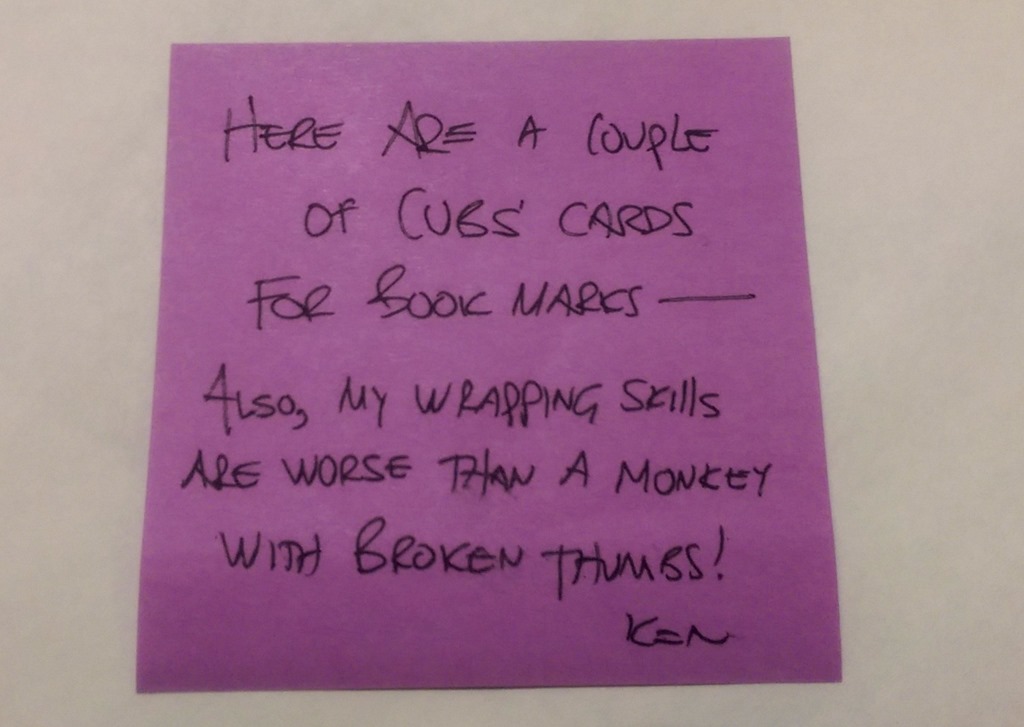 HERE ARE A COUPLE
OF CUBS' CARDS
FOR BOOK MARKS —
ALSO, MY WRAPPING SKills
ARE WORSE THAN A MONKEY
WITH BROKEN THUMBS!
KEN